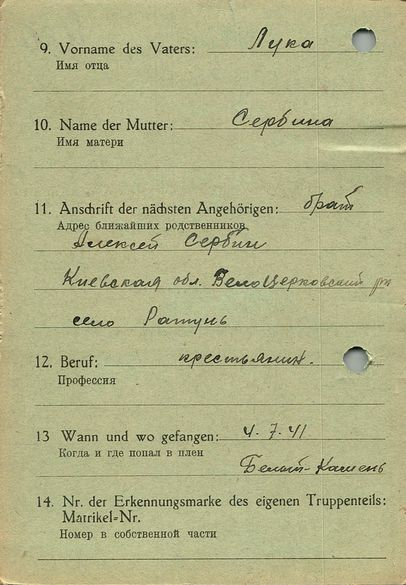 9. Vorname des Vaters: Лука
Имя отца
10. Name der Mutter: Сербина
Имя матери
11. Anschrift der nächsten Angehörigen: брат
Адрес ближайших родственников
Алексей Сербин
Киевская обл. Белоцерковский рн
село Ратунь
12. Beruf: крестьянин.
Профессия
13 Wann und wo gefangen: 4.7.41
Когда и где попал в плен
Белый-Камень
14. Nr. der Erkennungsmarke des eigenen Truppenteils:
Matrikel=Nr.
Номер в собственной части